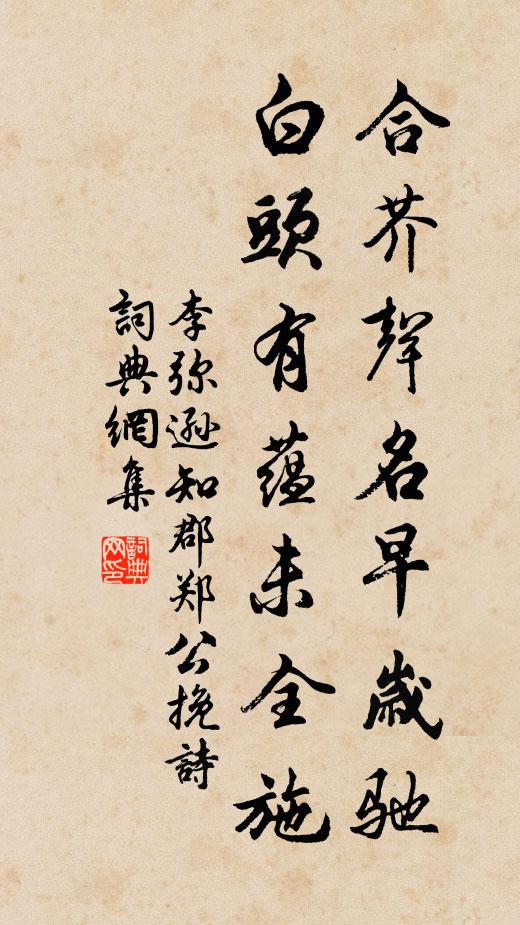 合芥聲名早歲馳
白頭有蘊未全施
李弥遜知郡郑公挽詩
詞典網集
詞典網印